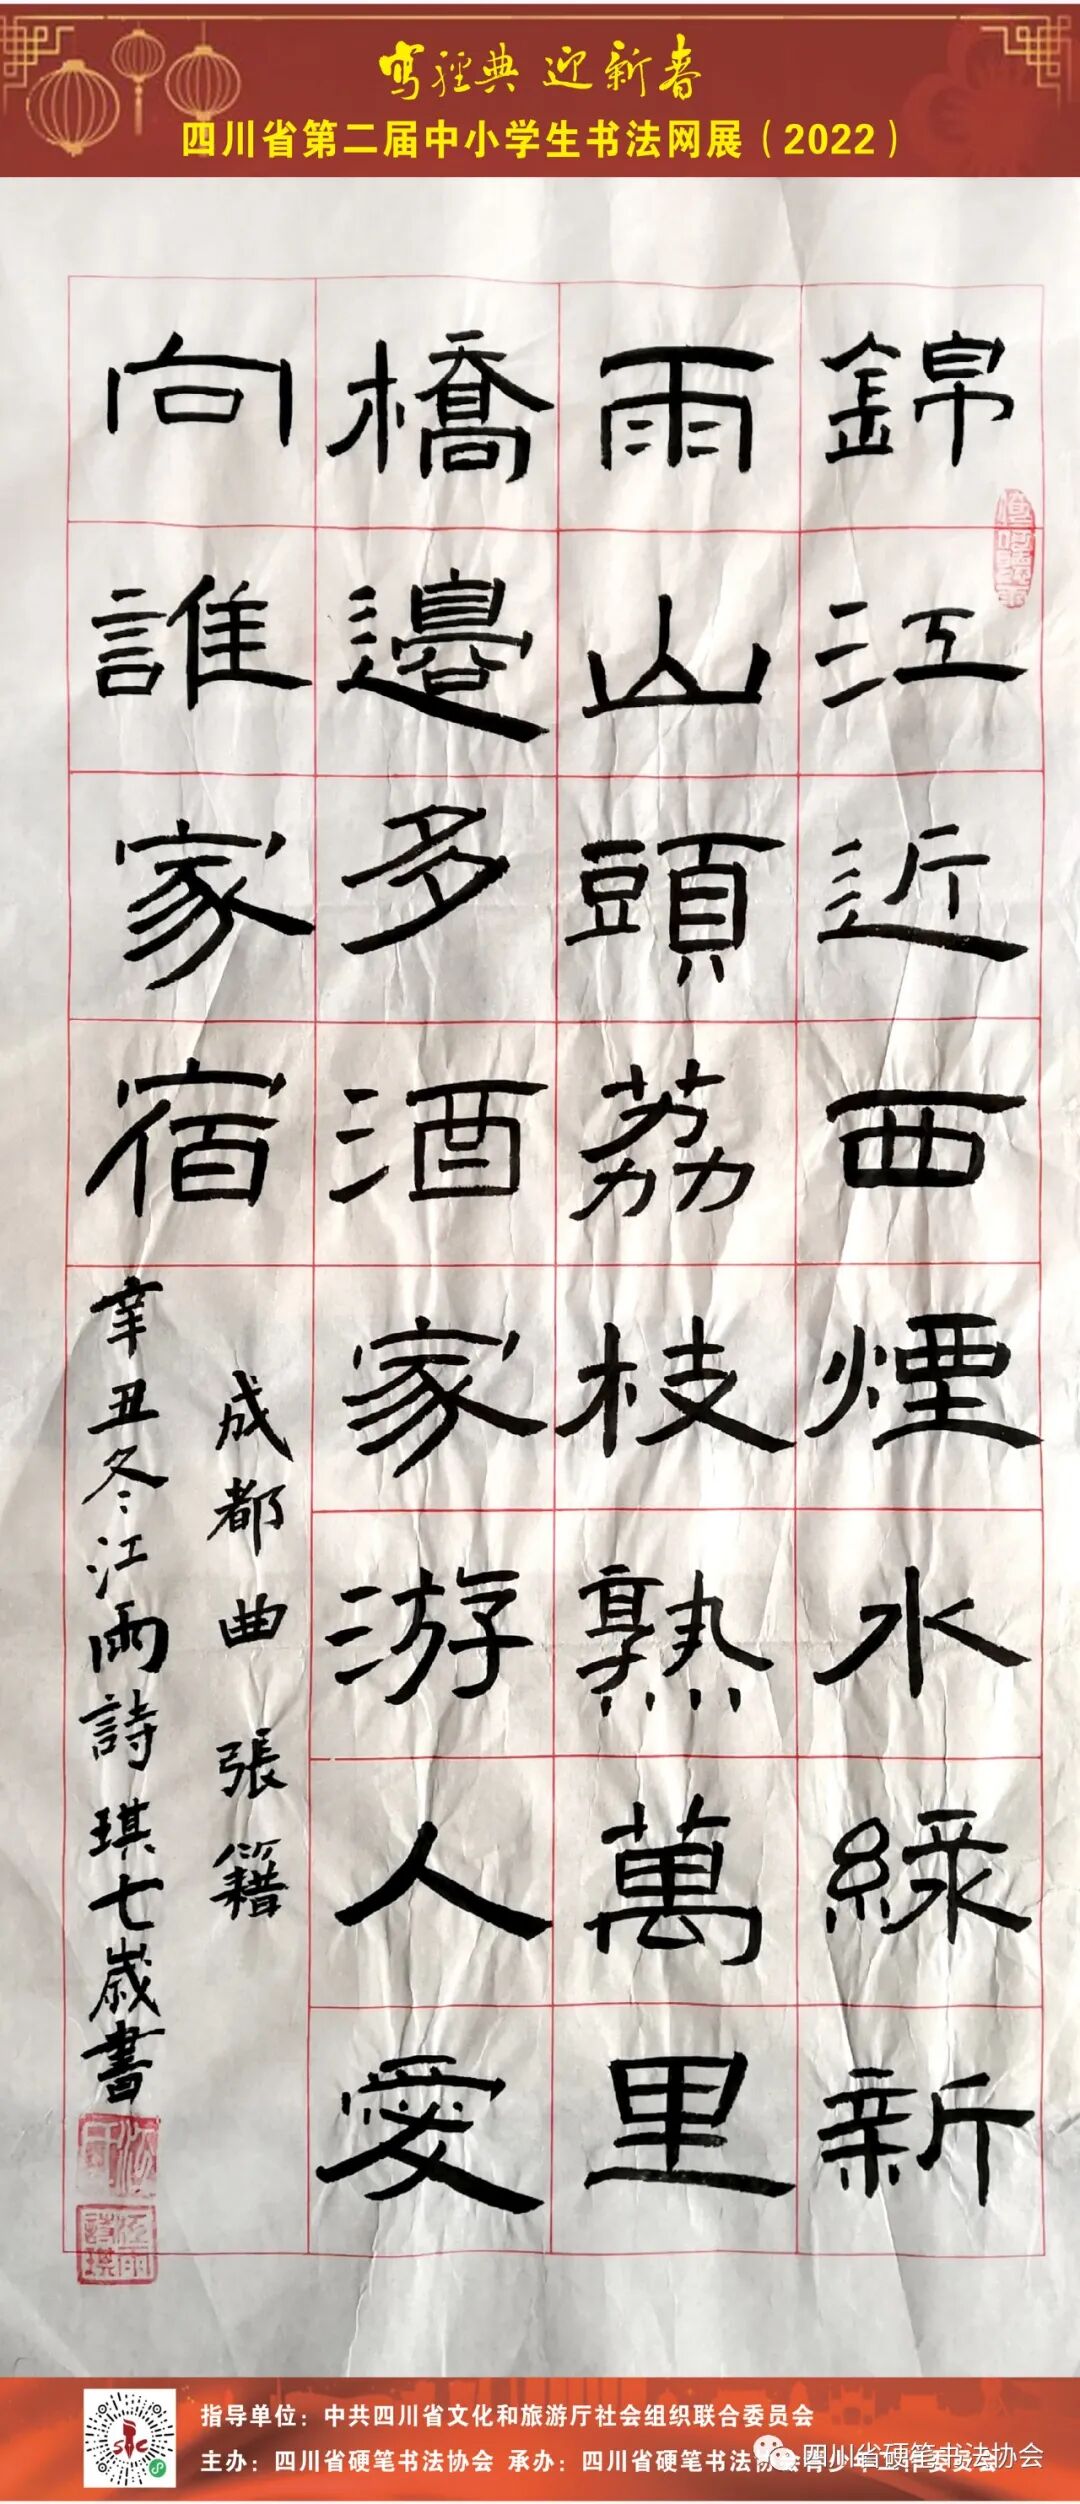 写經典 迎新春
四川省第二届中小学生书法网展（2022）
錦江近西煙水綠新
雨山頭荔枝熟萬里
橋邊多酒家游人愛
向誰家宿
成都曲 張籍
辛丑冬江雨詩琪七歲書
江雨詩琪
指导单位：中共四川省文化和旅游厅社会组织联合委员会
主办：四川省硬笔书法协会 承办：四川省硬笔书法协会青少年工作委员会
四川省硬笔书法协会